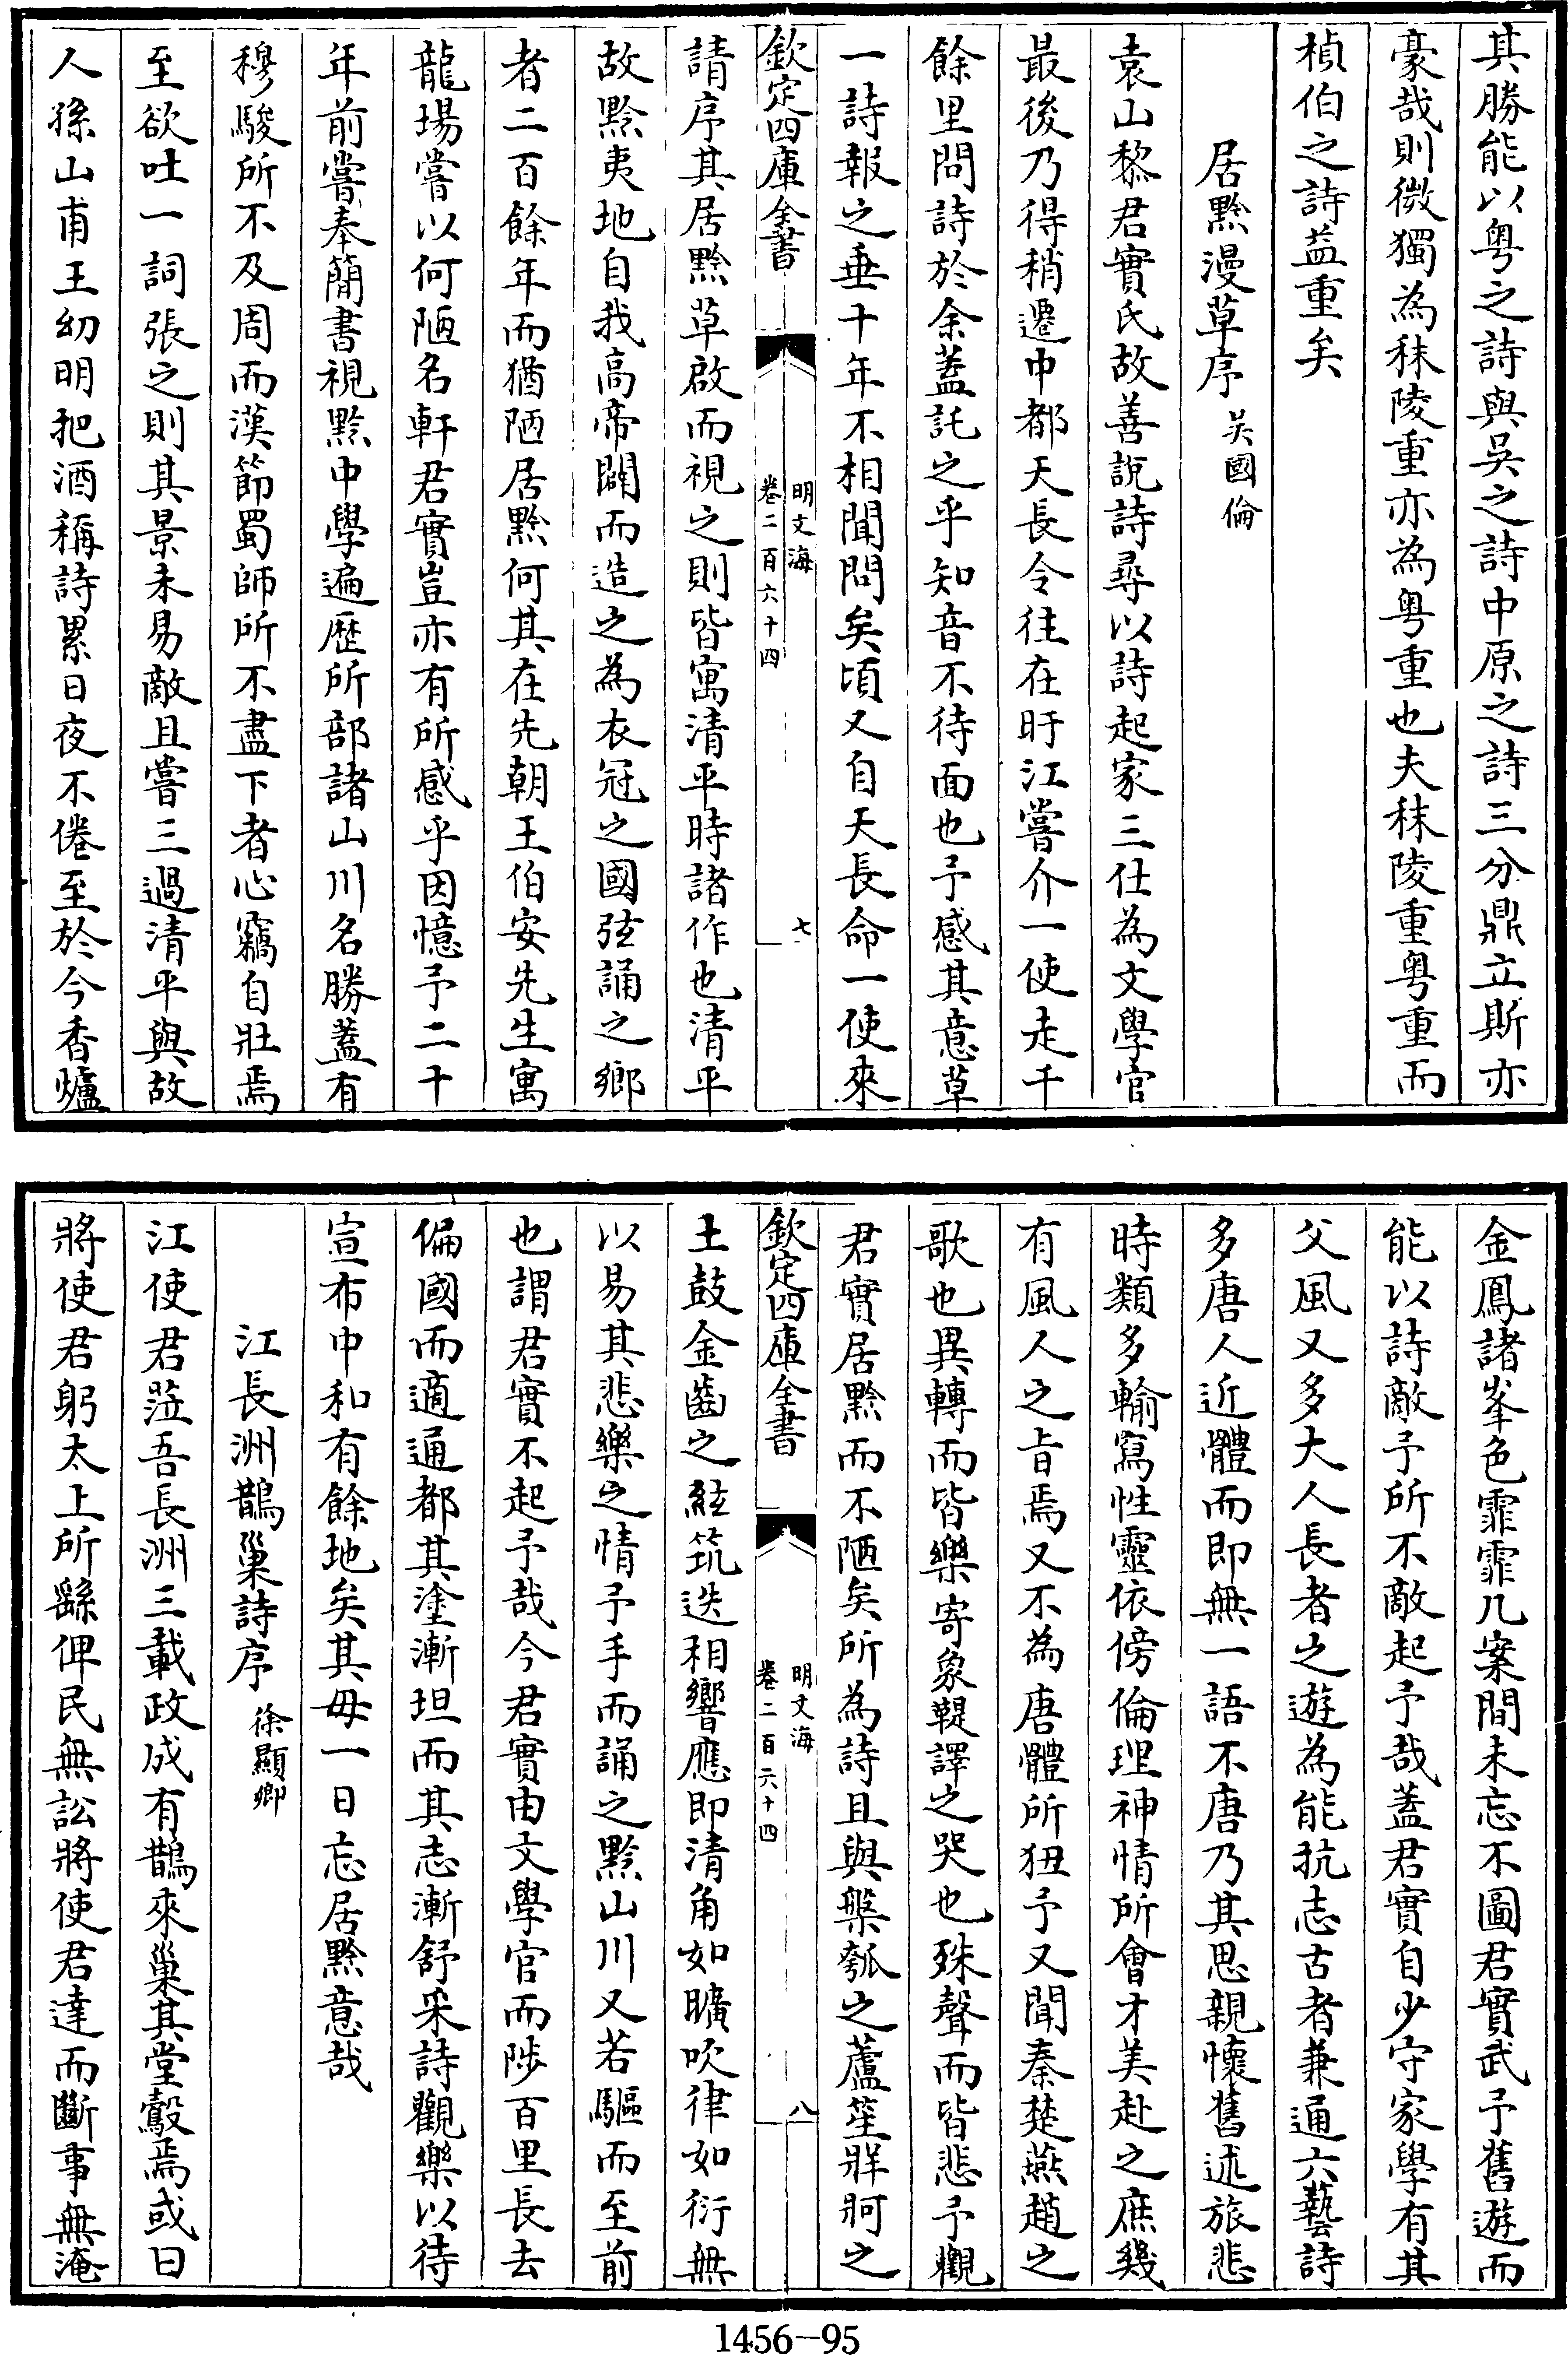 其勝能以粤之詩與吳之詩中原之詩三分鼎立斯亦
豪哉則微獨為秣陵重亦為粤重也夫秣陵重粤重而
楨伯之詩益重矣
居黔漫草序 吳國倫
袁山黎君實氏故善說詩尋以詩起家三仕為文學官
最後乃得稍遷中都天長令往在盱江嘗介一使走千
餘里問詩於余蓋託之乎知音不待面也予感其意草
一詩報之垂十年不相聞問矣頃又自天長命一使來
欽定四庫全書
明文海
卷二百六十四
七
請序其居黔草啟而視之則皆寓清平時諸作也清平
故黔夷地自我高帝闢而造之為衣冠之國弦誦之鄉
者二百餘年而猶陋居黔何其在先朝王伯安先生寓
龍場嘗以何陋名軒君實豈亦有所感乎因憶予二十
年前嘗奉簡書視黔中學遍歷所部諸山川名勝蓋有
穆駿所不及周而漢節蜀師所不盡下者心竊自壯焉
至欲吐一詞張之則其景未易敵且嘗三過清平與故
人孫山甫王幼明把酒稱詩累日夜不倦至於今香爐
金鳳諸峯色霏霏几案間未忘不圖君實武予舊遊而
能以詩敵予所不敵起予哉蓋君實自少守家學有其
父風又多大人長者之遊為能抗志古者兼通六藝詩
多唐人近體而即無一語不唐乃其思親懷舊述旅悲
時類多輸寫性靈依傍倫理神情所會才美赴之庶幾
有風人之旨焉又不為唐體所狃予又聞秦楚燕趙之
歌也異轉而皆樂寄象鞮譯之哭也殊聲而皆悲予觀
君實居黔而不陋矣所為詩且與槃瓠之蘆笙牂牁之
欽定四庫全書
明文海
卷二百六十四
八
土鼓金齒之絃筑迭相響應即清角如曠吹律如衍無
以易其悲樂之情予手而誦之黔山川又若驅而至前
也謂君實不起予哉今君實由文學官而陟百里長去
偏國而適通都其塗漸坦而其志漸舒采詩觀樂以待
宣布中和有餘地矣其毋一日忘居黔意哉
江長洲鵲巢詩序 徐顯卿
江使君蒞吾長洲三載政成有鵲來巢其堂鷇焉或曰
將使君躬太上所繇俾民無訟將使君達而斷事無淹
1456-95